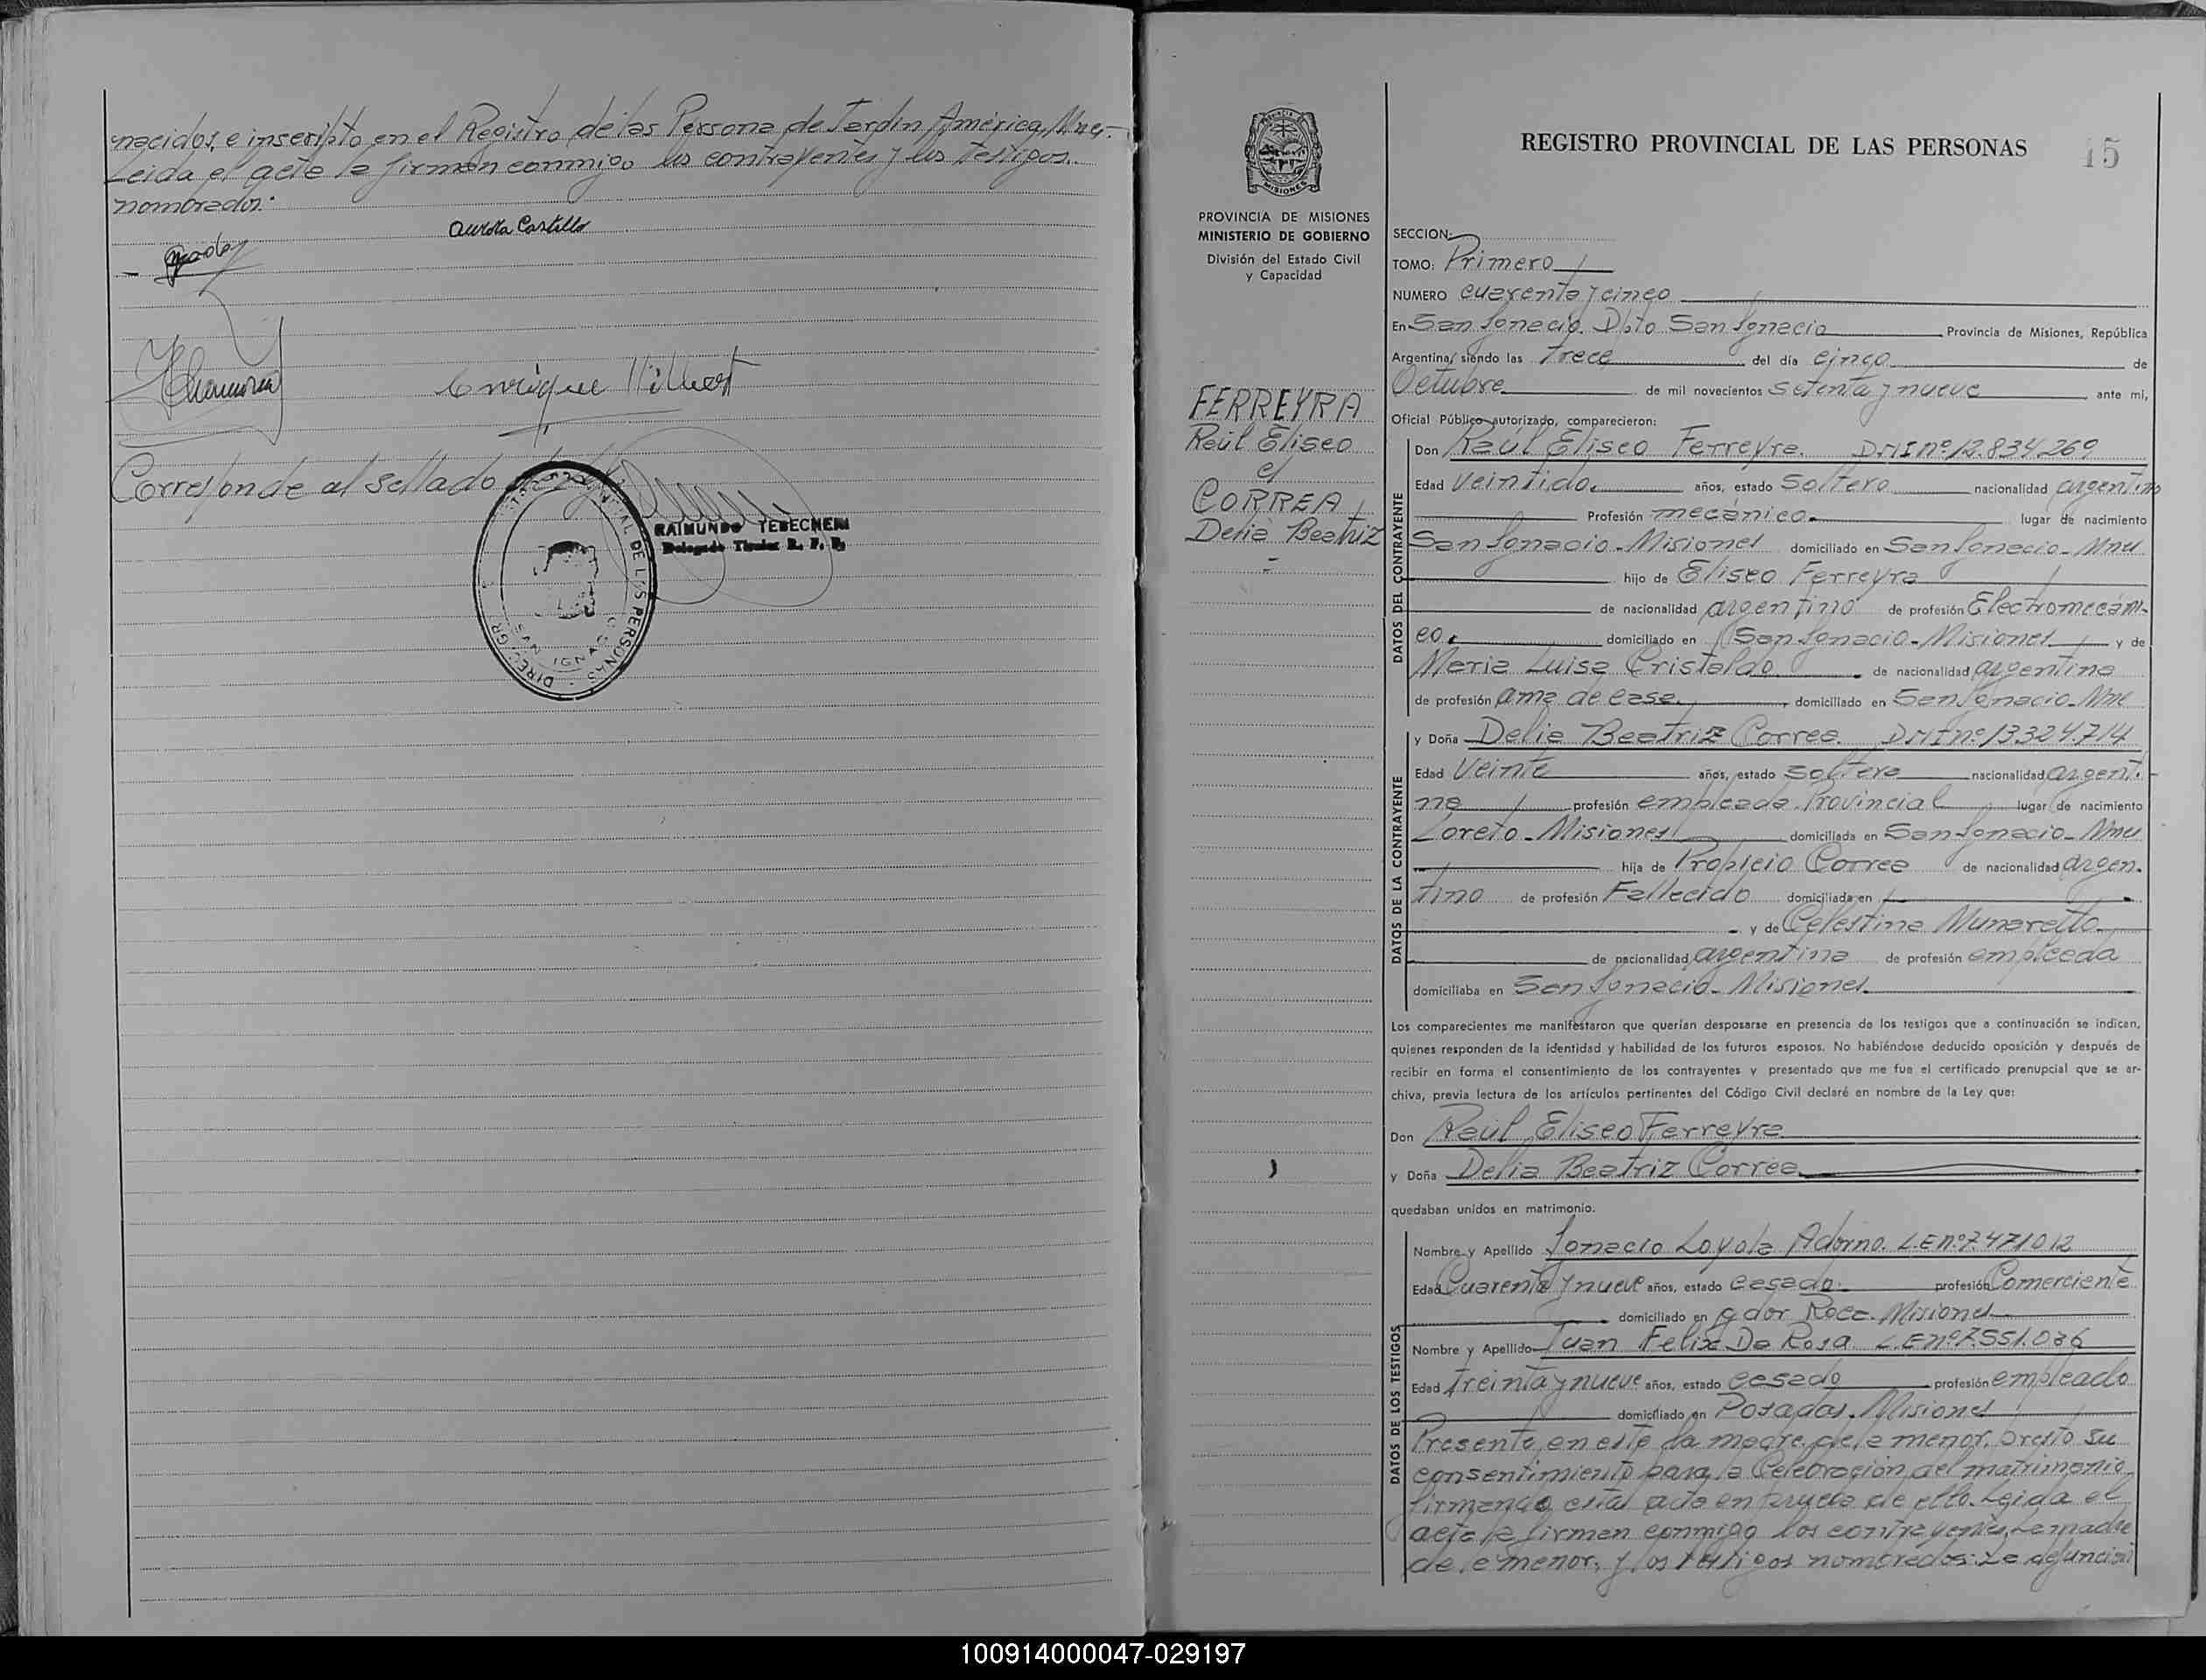 nacidos, e inscripto en el Registro de las Persona de Jardín América, Mnes.-
Leida el acta la firman conmigo los contrayentes y los testigos
nombrados.
Aurora Castillo
Enrique Hilbert
Corresponde al sellado de ley
RAIMUNDO TEBECHERI
Delegado Titular R. P. P.
SAN IGNACIO
PROVINCIA DE MISIONES
MINISTERIO DE GOBIERNO
División del Estado Civil
y Capacidad
FERREYRA
Raúl Eliseo
c/
CORREA
Delia Beatriz
=
REGISTRO PROVINCIAL DE LAS PERSONAS 45
SECCION:
TOMO: Primero
NUMERO cuarenta y cinco
En San Ignacio. Dpto San Ignacio Provincia de Misiones, República
Argentina, siendo las Trece del día cinco de
Octubre de mil novecientos setenta y nueve ante mi,
Oficial Público autorizado, comparecieron:
DATOS DEL CONTRAYENTE
Don Raúl Eliseo Ferreyra. DNI nº 12.834.269
Edad Veintidos años, estado Soltero nacionalidad argentino
Profesión mecánico. lugar de nacimiento
San Ignacio - Misiones domiciliado en San Ignacio - Mnes
hijo de Eliseo Ferreyra
de nacionalidad argentino de profesión Electromecáni-
co. domiciliado en San Ignacio - Misiones y de
Maria Luisa Cristaldo de nacionalidad argentina
de profesión ama de casa. domiciliado en San Ignacio - Mne
DATOS DE LA CONTRAYENTE
y Doña Delia Beatriz Correa. DNI nº 13.324.714
Edad Veinte años, estado soltera nacionalidad argenti-
na profesión empleada Provincial lugar de nacimiento
Loreto - Misiones domiciliada en San Ignacio - Mnes
hija de Propicio Correa de nacionalidad argen-
tino de profesión Fallecido domiciliada en
y de Celestina Munaretto
de nacionalidad argentina de profesión empleada
domiciliaba en San Ignacio - Misiones.
Los comparecientes me manifestaron que querían desposarse en presencia de los testigos que a continuación se indican,
quienes responden de la identidad y habilidad de los futuros esposos. No habiéndose deducido oposición y después de
recibir en forma el consentimiento de los contrayentes y presentado que me fue el certificado prenupcial que se ar-
chiva, previa lectura de los artículos pertinentes del Código Civil declaré en nombre de la Ley que:
Don Raúl Eliseo Ferreyra
y Doña Delia Beatriz Correa
quedaban unidos en matrimonio.
DATOS DE LOS TESTIGOS
Nombre y Apellido Ignacio Loyola Adorno. L.E nº 7.471.012
Edad Cuarenta y nueve años, estado casado profesión Comerciante
domiciliado en Gdor Roca - Misiones
Nombre y Apellido Juan Felix Da Rosa L.E nº 7.551.036
Edad Treinta y nueve años, estado casado profesión empleado
domiciliado en Posadas. Misiones
Presente en este la madre de la menor, presto su
consentimiento para la Celebración del matrimonio
firmando esta acta en prueba de ello. Leida el
acta la firman conmigo los contrayentes, la madre
de la menor, y los testigos nombrados: La defunción
100914000047-029197